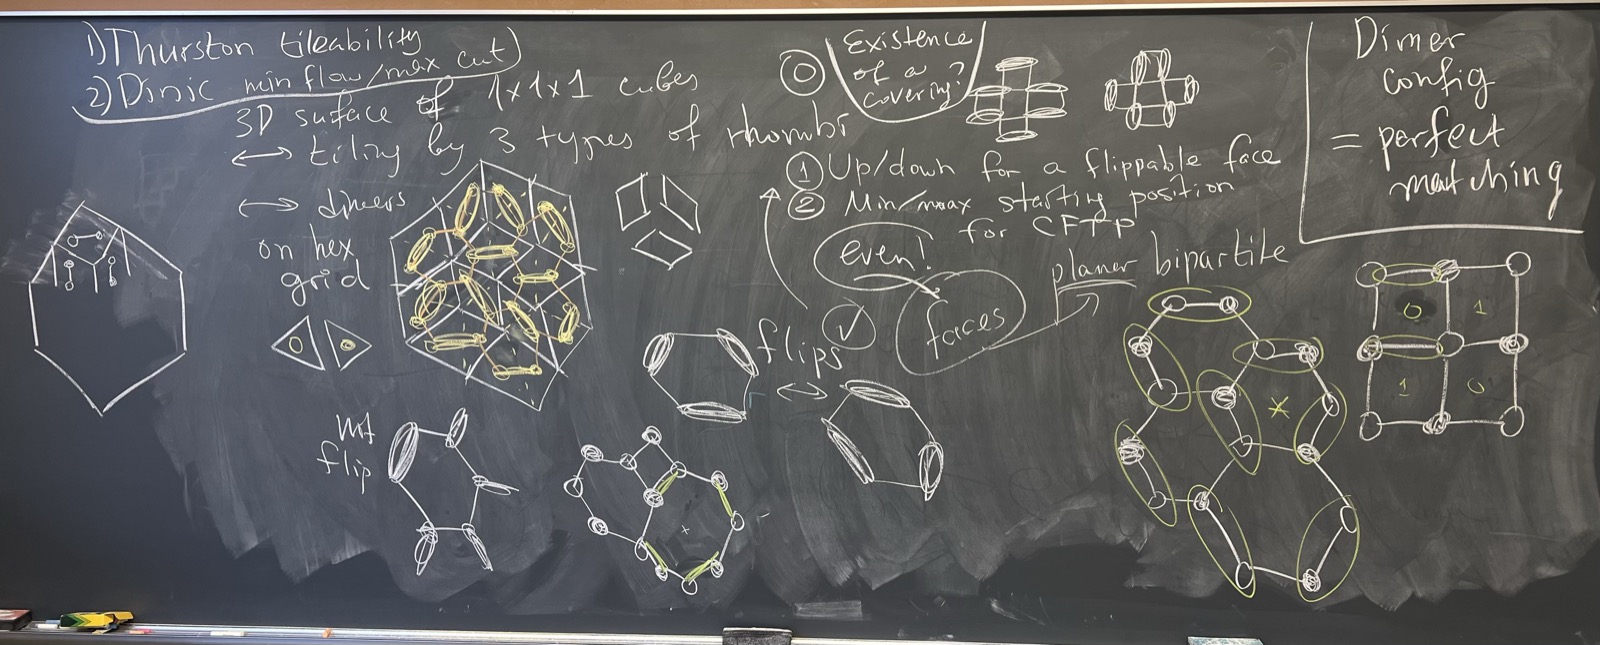 1) Thurston tileability
2) Dinic min flow/max cut)
3D surface of 1x1x1 cubes
↔ tiling by 3 types of rhombi
↔ dimers
on hex
grid
not
flip
0 Existence
of a
covering?
1 Up/down for a flippable face
2 Min/max starting position
for CFTP
even!
faces
planar bipartite
flips ✓
↔
Dimer
config
= perfect
matching
0 1
1 0